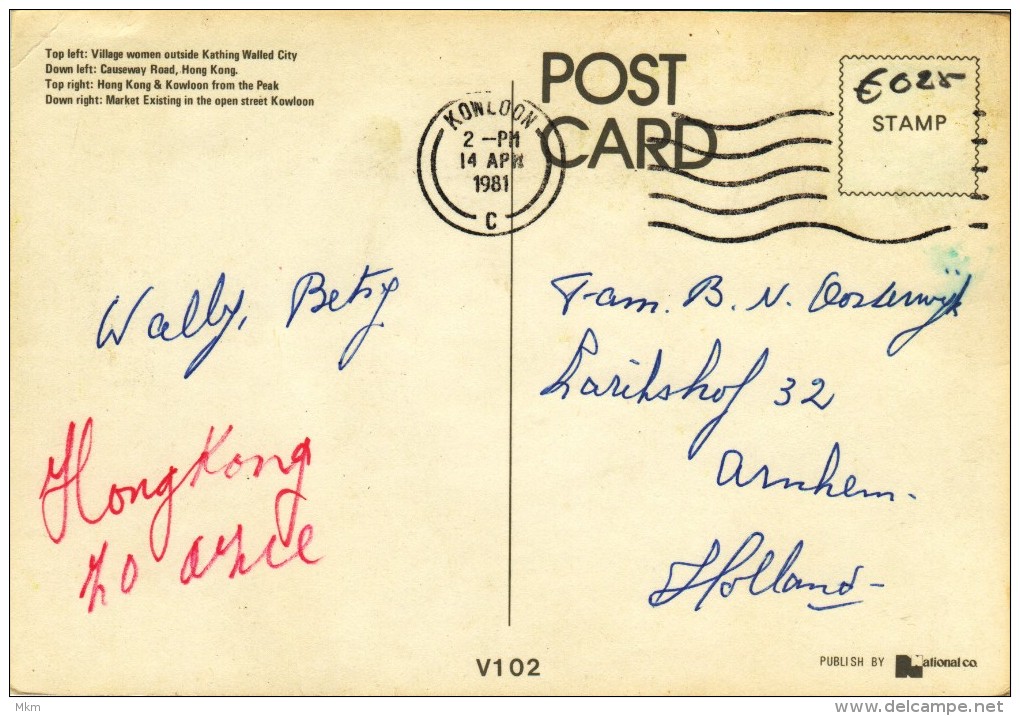 Top left: Village women outside Kathing Walled City
Down left: Causeway Road, Hong Kong.
Top right: Hong Kong & Kowloon from the Peak
Down right: Market Existing in the open street Kowloon
POST
CARD
KOWLOON
2 -PM
14 APR
1981
C
€025
STAMP
Wally, Betsy
Hong Kong
Z O Azie
Fam. B. N. Oosterwijk
Laritshof 32
Arnhem.
Holland-
V102
PUBLISH BY National co.
Mkm
www.delcampe.net